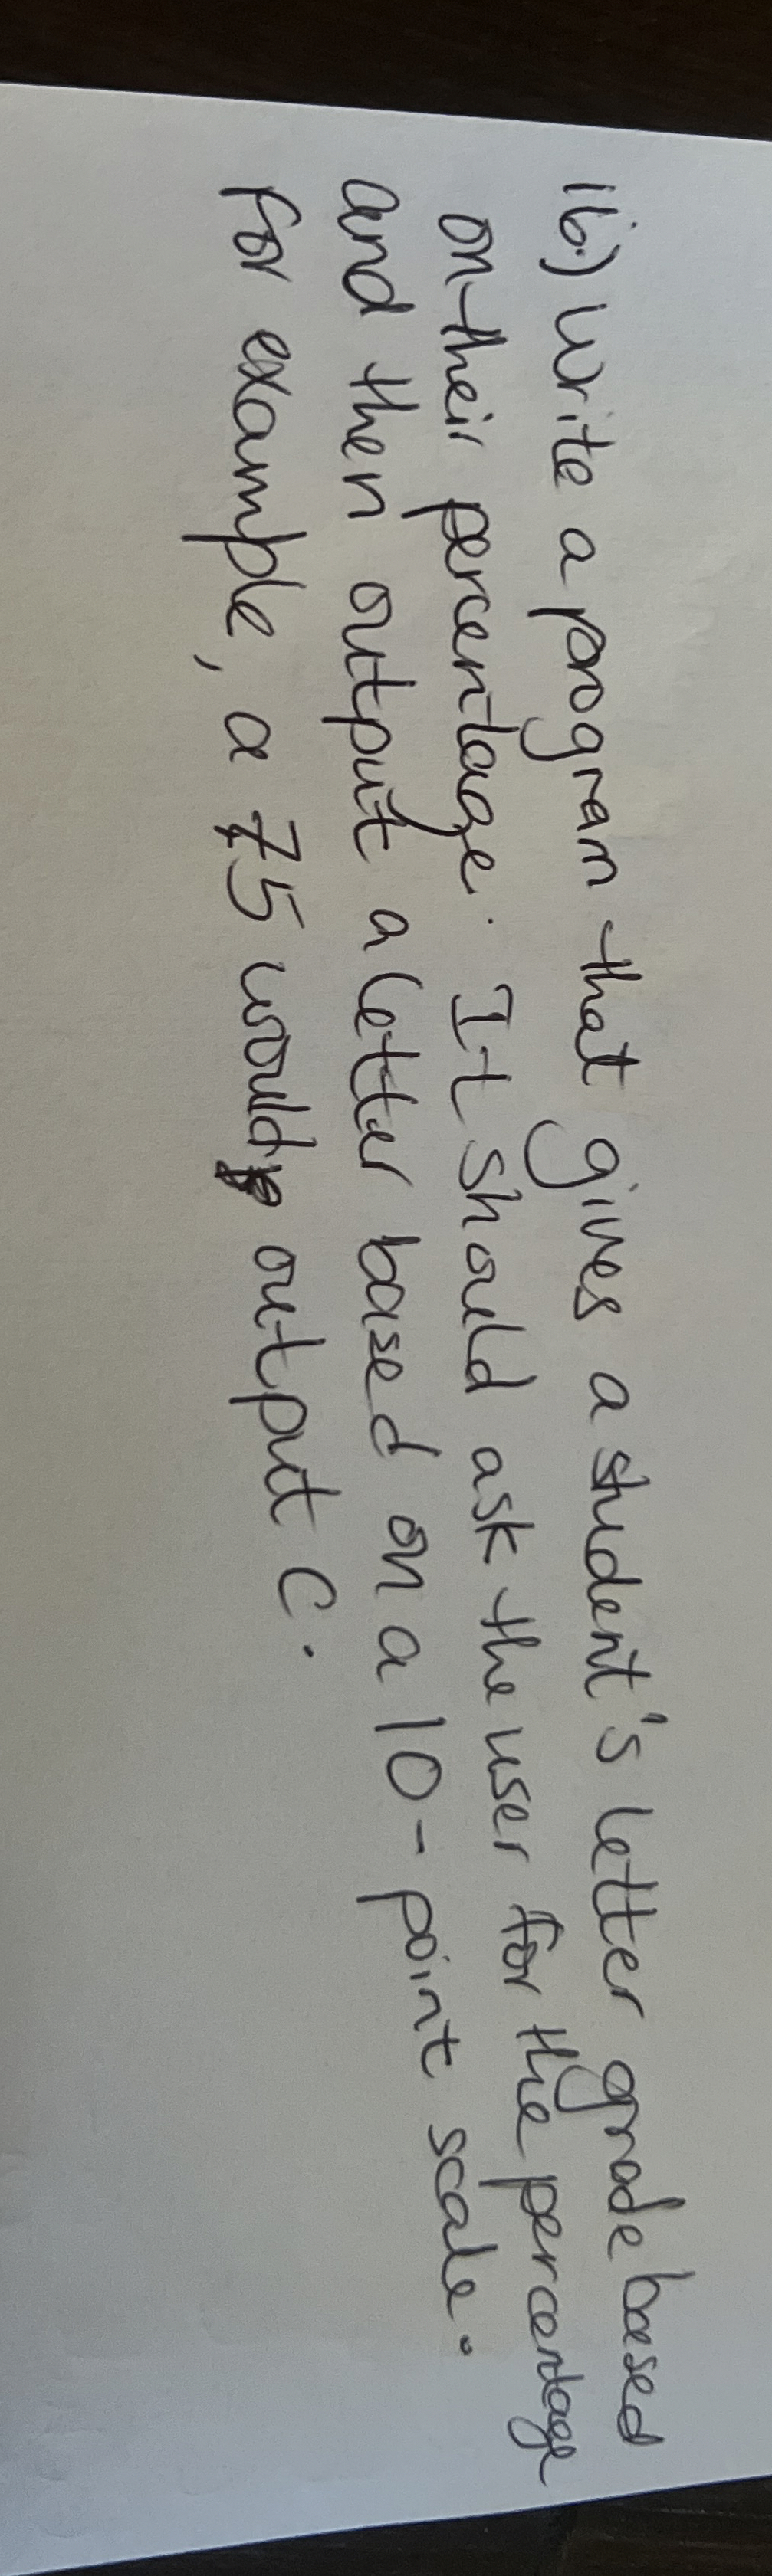 16.) Write a program that gives a student's letter grade based
on their percentage. It should ask the user for the percentage
and then output a letter based on a 10-point scale.
For example, a 75 would output C.